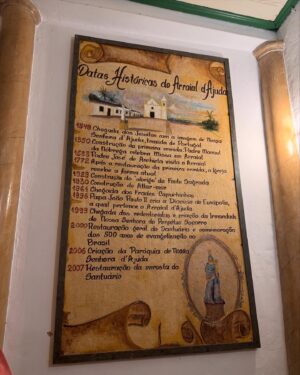 Datas Históricas de Arraial d'Ajuda
1549 Chegada dos Jesuítas com a imagem de Nossa
Senhora d'Ajuda, trazida de Portugal
1550 Construção da primeira ermida, Padre Manoel
da Nóbrega celebra Missa em Arraial
Padre José de Anchieta visita o Arraial
1772 Após a restauração da primeira ermida, a Igreja
recebe a forma atual
Construção do da Fonte Sagrada
Construção do Altar-mor
Chegada dos Frades Capuchinhos
Papa João Paulo II cria a Diocese de Eunápolis,
a qual pertence o Arraial d'Ajuda
1999 Chegada dos redentoristas e criação da Irmandade
de Nossa Senhora do Perpétuo Socorro
2000 Restauração geral do Santuário e comemoração
dos 500 anos de evangelização no
Brasil
2006 Criação da Paróquia de Nossa
Senhora d'Ajuda
2007 Restauração da
Santuário